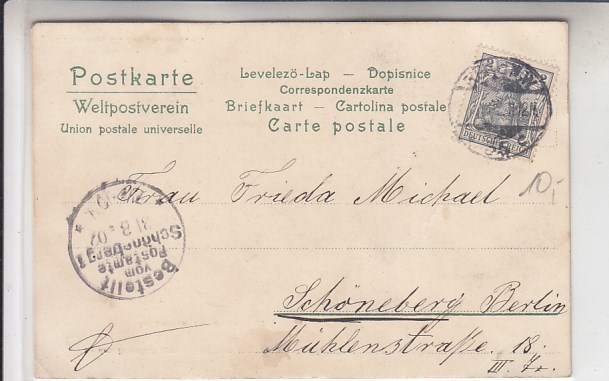 Postkarte
Weltpostverein
Union postale universelle
Levelezö-Lap — Dopisnice
Correspondenzkarte
Briefkaart — Cartolina postale
Carte postale
2 2
DEUTSCHES REICH
10,-
Frau Frieda Michael
Bestellt
vom
Postamte
Schöneberg 1
31.8.02
Schöneberg Berlin
Mühlenstraße 18.
III.